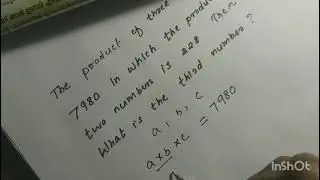 The product of three
7980 in which the product
two numbers is 228 Then
What is the third number?
a, b, c
a×b×c = 7980
InShOt